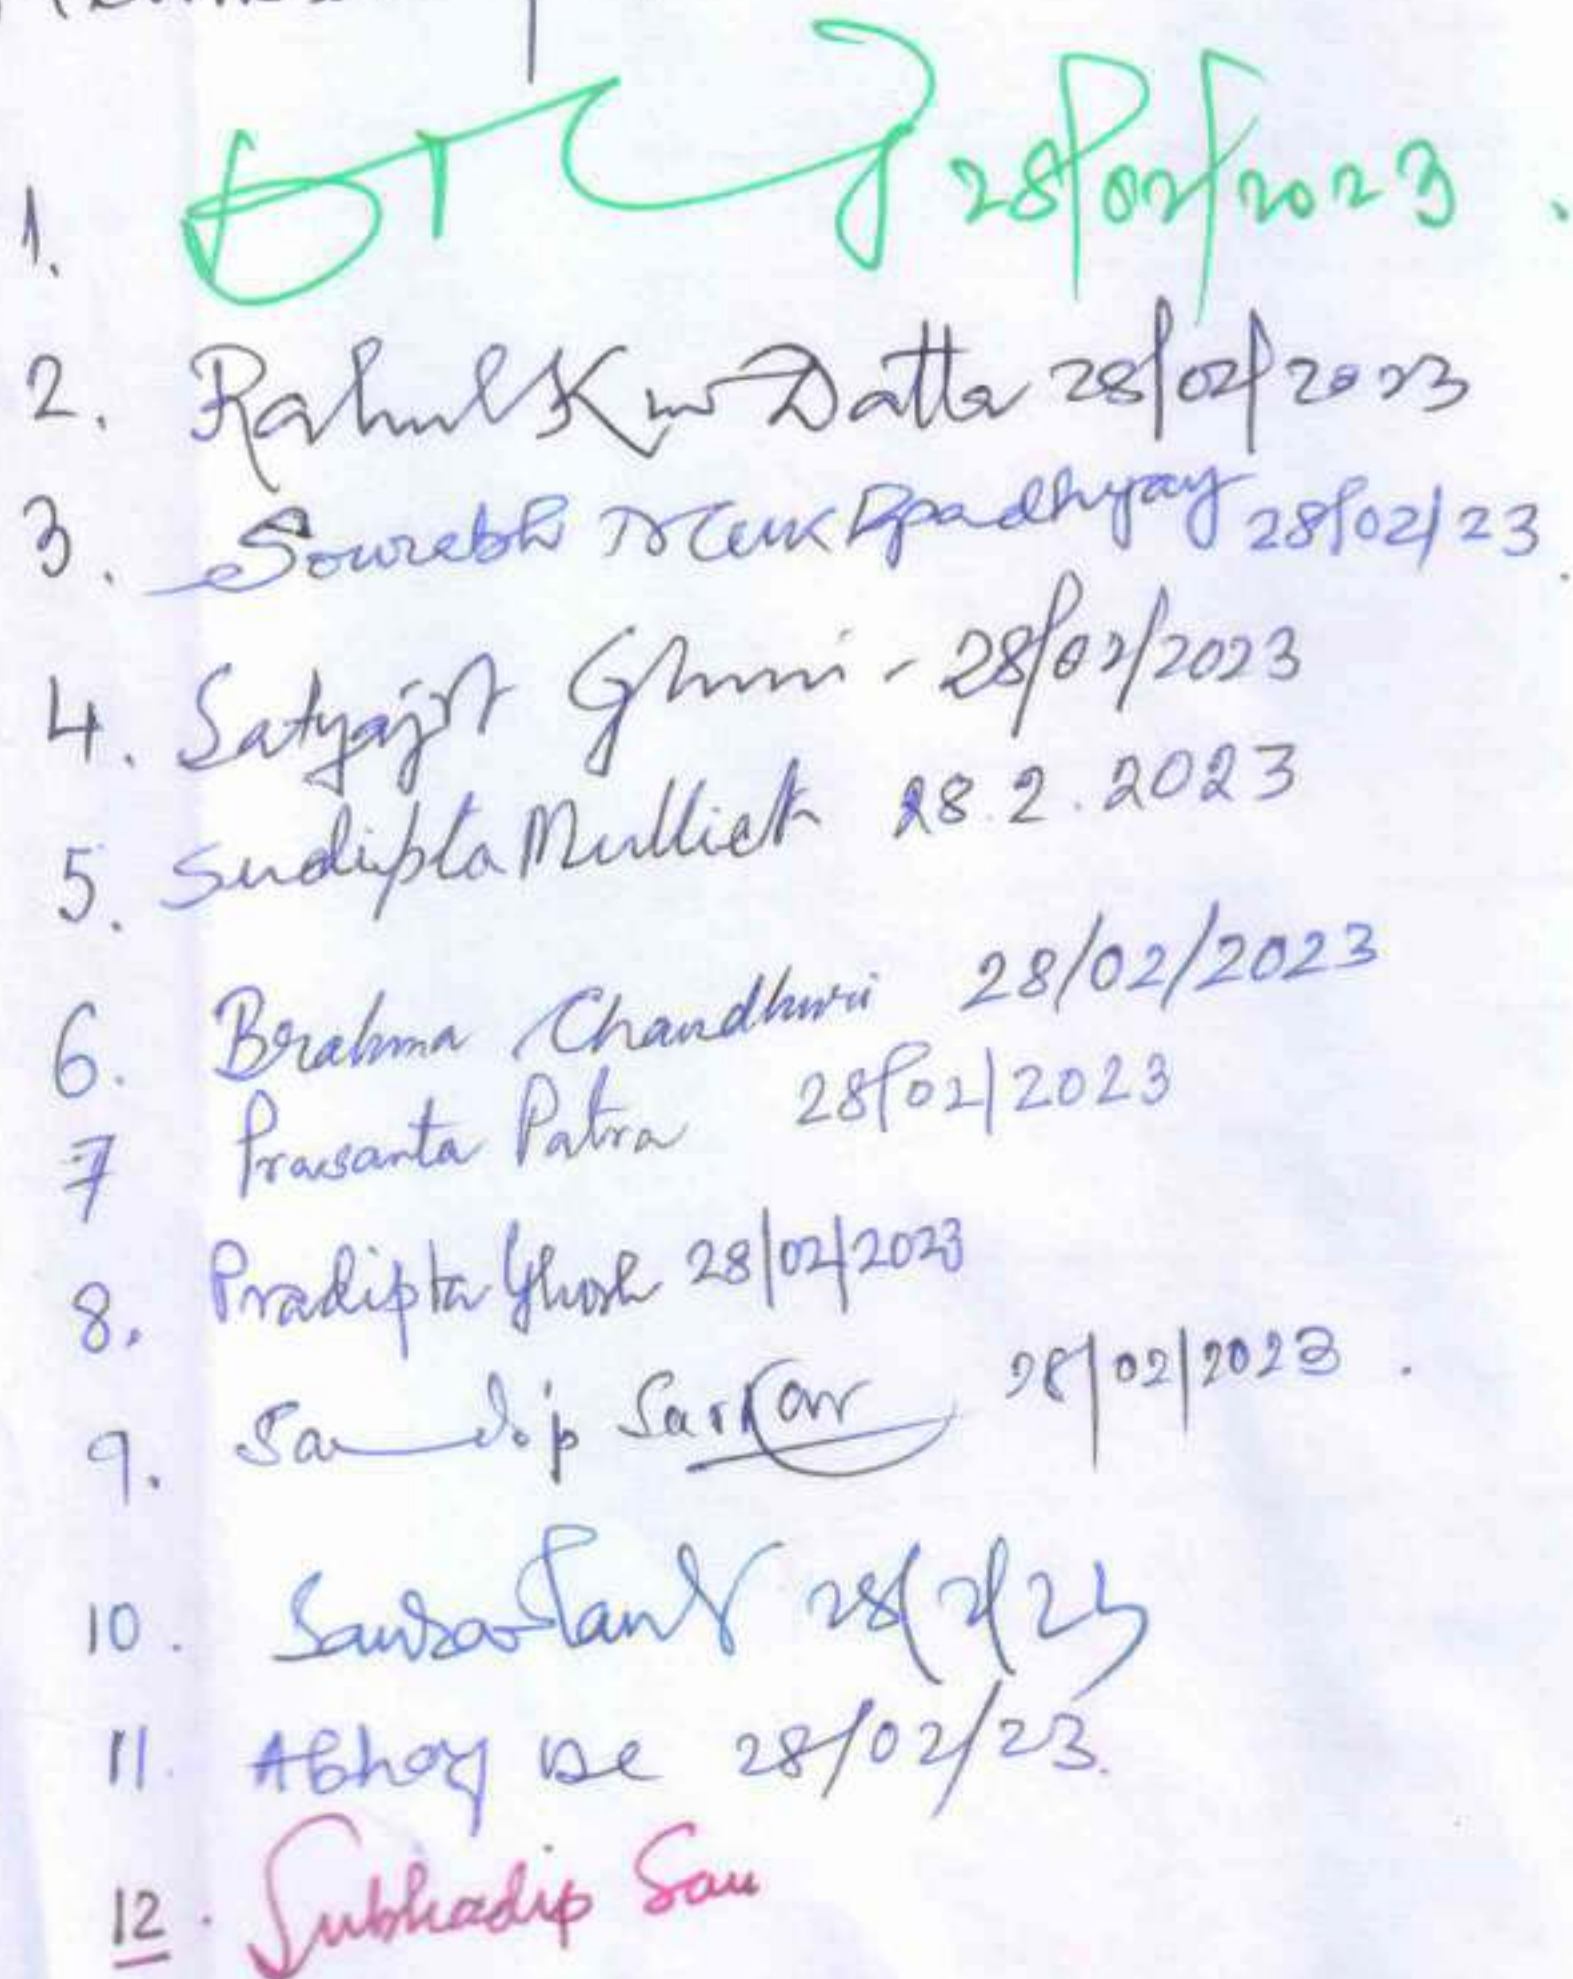 1. 28/02/2023.
2. Rahul Kr Datta 28/02/2023
3. Sourabh Mukhopadhyay 28/02/23.
4. Satyajit - 28/02/2023
5. Sudipta Mullick 28.2.2023
6. Brahma Chaudhuri 28/02/2023
7 Prasanta Patra 28/02/2023
8. Pradipta Ghosh 28/02/2023
9. Sandip Sarkar 28/02/2023.
10. 28/2/23
11. Abhoy De 28/02/23.
12. Subhadip Sau